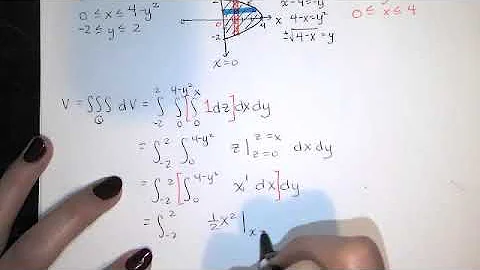 0 ≤ x ≤ 4-y²
-2 ≤ y ≤ 2
2
0
4
-2
x
x-4=-y²
4-x=y²
±√4-x = y
0 ≤ x ≤ 4
x=0
V = ∭_Q dV = ∫_{-2}^{2} ∫_0^{4-y²} [∫_0^x 1dz] dx dy
= ∫_{-2}^{2} ∫_0^{4-y²} z |_{z=0}^{z=x} dx dy
= ∫_{-2}^{2} [∫_0^{4-y²} x¹ dx] dy
= ∫_{-2}^{2} ½x² |_x